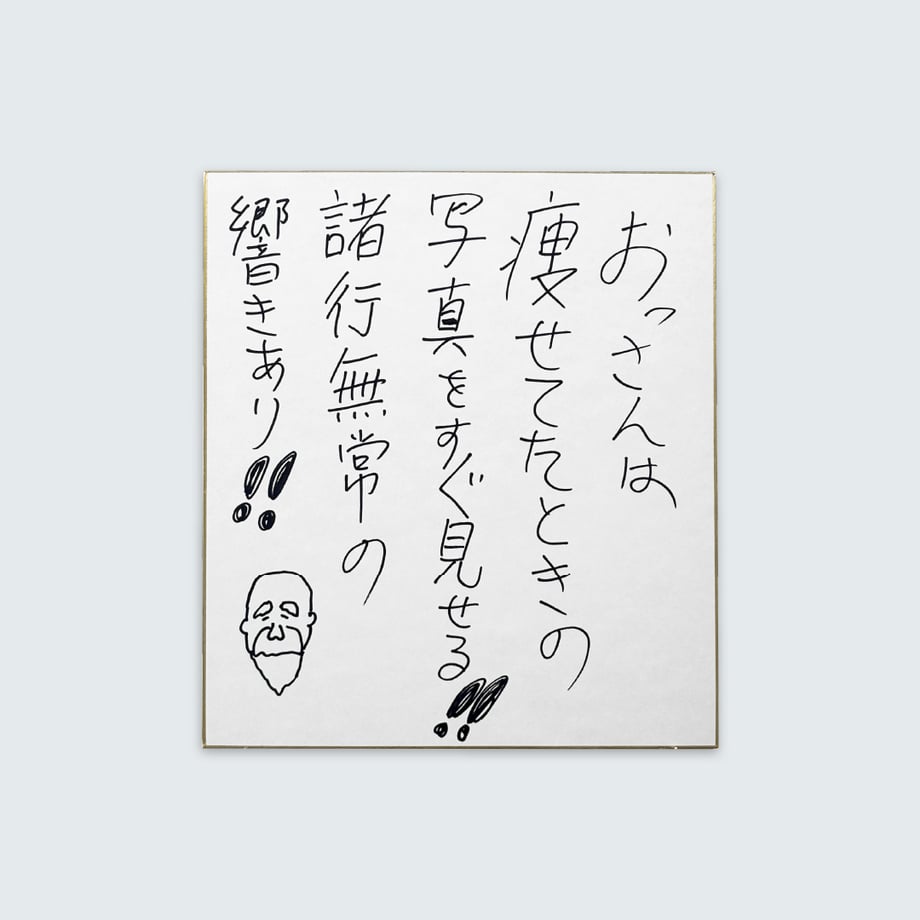 おっさんは
痩せてたときの
写真をすぐ見せる!!
諸行無常の
響きあり!!